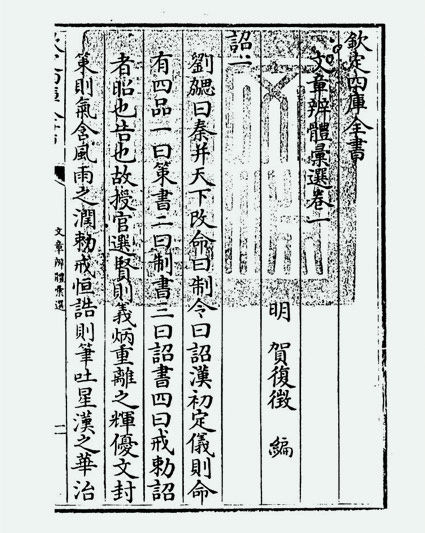 欽定四庫全書
文章辨體彙選卷一
明 賀復徵 編
詔一
劉勰曰秦并天下改命曰制令曰詔漢初定儀則命
有四品一曰策書二曰制書三曰詔書四曰戒勅詔
者昭也告也故授官選賢則義炳重離之輝優文封
策則氣含風雨之潤勅戒恒誥則筆吐星漢之華治
文章辨體彙選